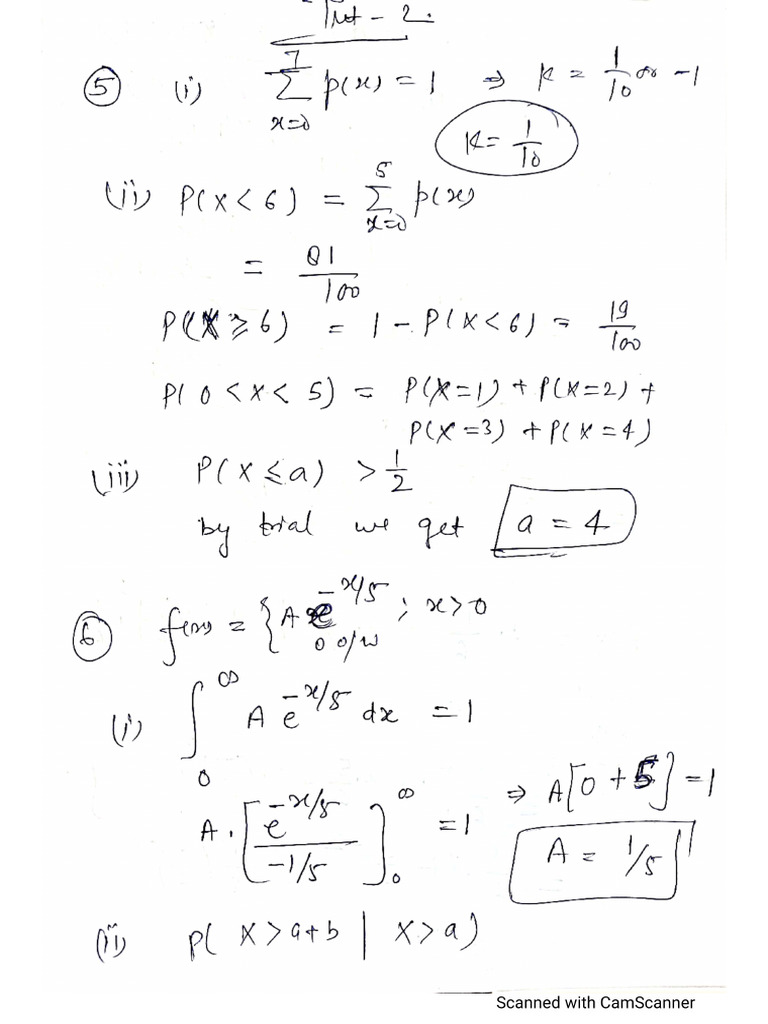 Tut - 2.
⑤ (i) \sum_{x=0}^{7} p(x) = 1 ⇒ K = 1/10 or -1
K = 1/10
(ii) P(X < 6) = \sum_{x=0}^{5} p(x)
= 81/100
P(X ≥ 6) = 1 - P(X < 6) = 19/100
P(0 < X < 5) = P(X=1) + P(X=2) +
P(X=3) + P(X=4)
(iii) P(X ≤ a) > 1/2
by trial we get a = 4
⑥ f(x) = { A e^{-x/5} ; x > 0
0 o/w
(i) \int_0^∞ A e^{-x/5} dx = 1
A . [e^{-x/5} / (-1/5)]_0^∞ = 1 ⇒ A[0 + 5] = 1
A = 1/5
(ii) P( X > a+b | X > a)
Scanned with CamScanner